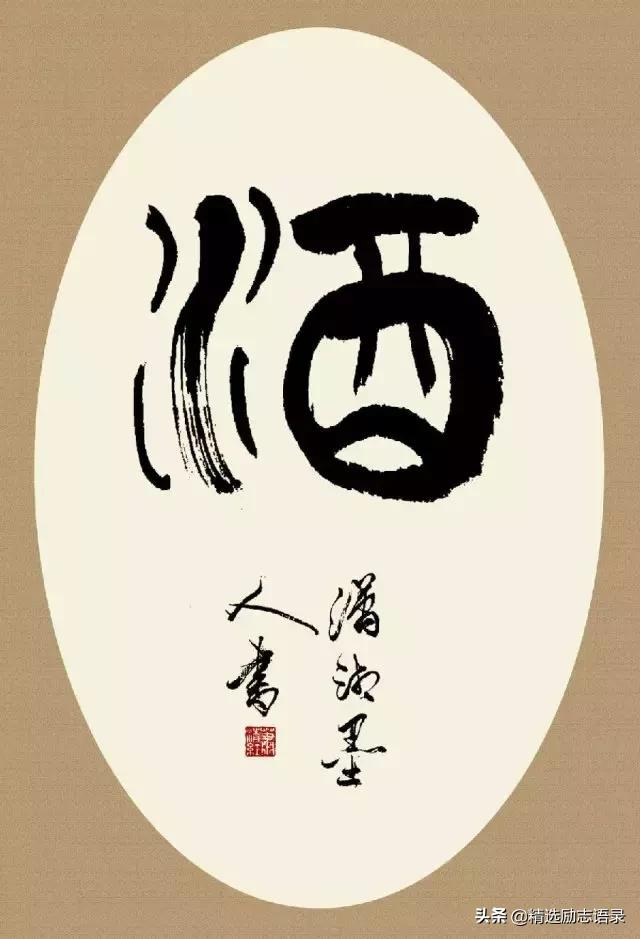 酒
潇湘墨
人書
头条 @精选励志语录